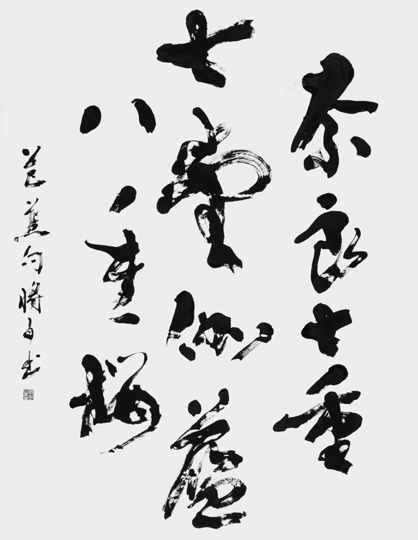 奈良七重
七堂伽藍
八重桜
芭蕉句 書